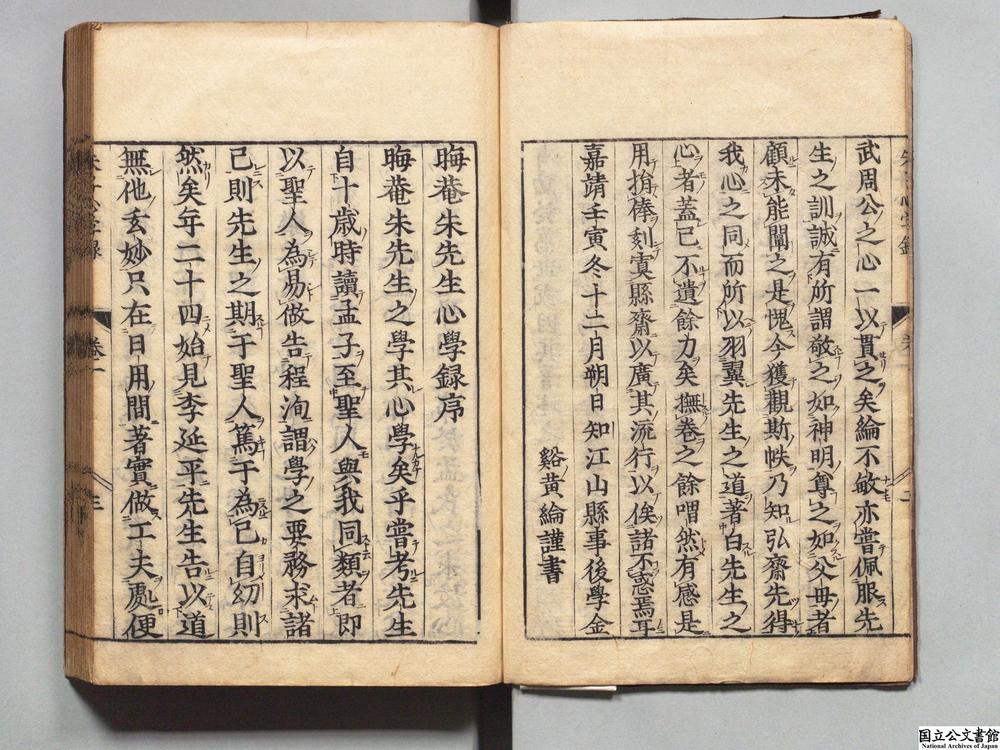 武周公之心一以貫之矣綸不敏亦嘗佩服先
生之訓誠有所謂敬之如神明尊之如父母者
顧未能闡之是愧今獲觀斯帙乃知弘齋先得
我心之同而所以羽翼先生之道著白先生之
心者蓋已不遺餘力矣撫卷之餘喟然有感是
用捐俸刻寘縣齋以廣其流行以俟諸不惑焉耳
嘉靖壬寅冬十二月朔日知江山縣事後學金
谿黃綸謹書
晦菴朱先生心學録序
晦菴朱先生之學其心學矣乎嘗考先生
自十歲時讀孟子至聖人與我同類者即
以聖人為易做告程洵謂學之要務求諸
己則先生之期于聖人篤于為己自幼則
然矣年二十四始見李延平先生告以道
無他玄妙只在日用間著實做工夫處便
朱子心學録
卷一
三
二
国立公文書館
National Archives of Japan